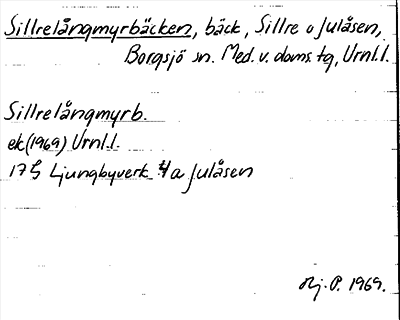 Sillrelångmyrbäcken, bäck, Sillre o Julåsen,
Borgsjö sn. Med. v. doms. tg, Urnl.l.
Sillrelångmyrb.
ek(1969) Urnl.l.
17 Ljungbyverk a Julåsen
Hj. P. 1969.